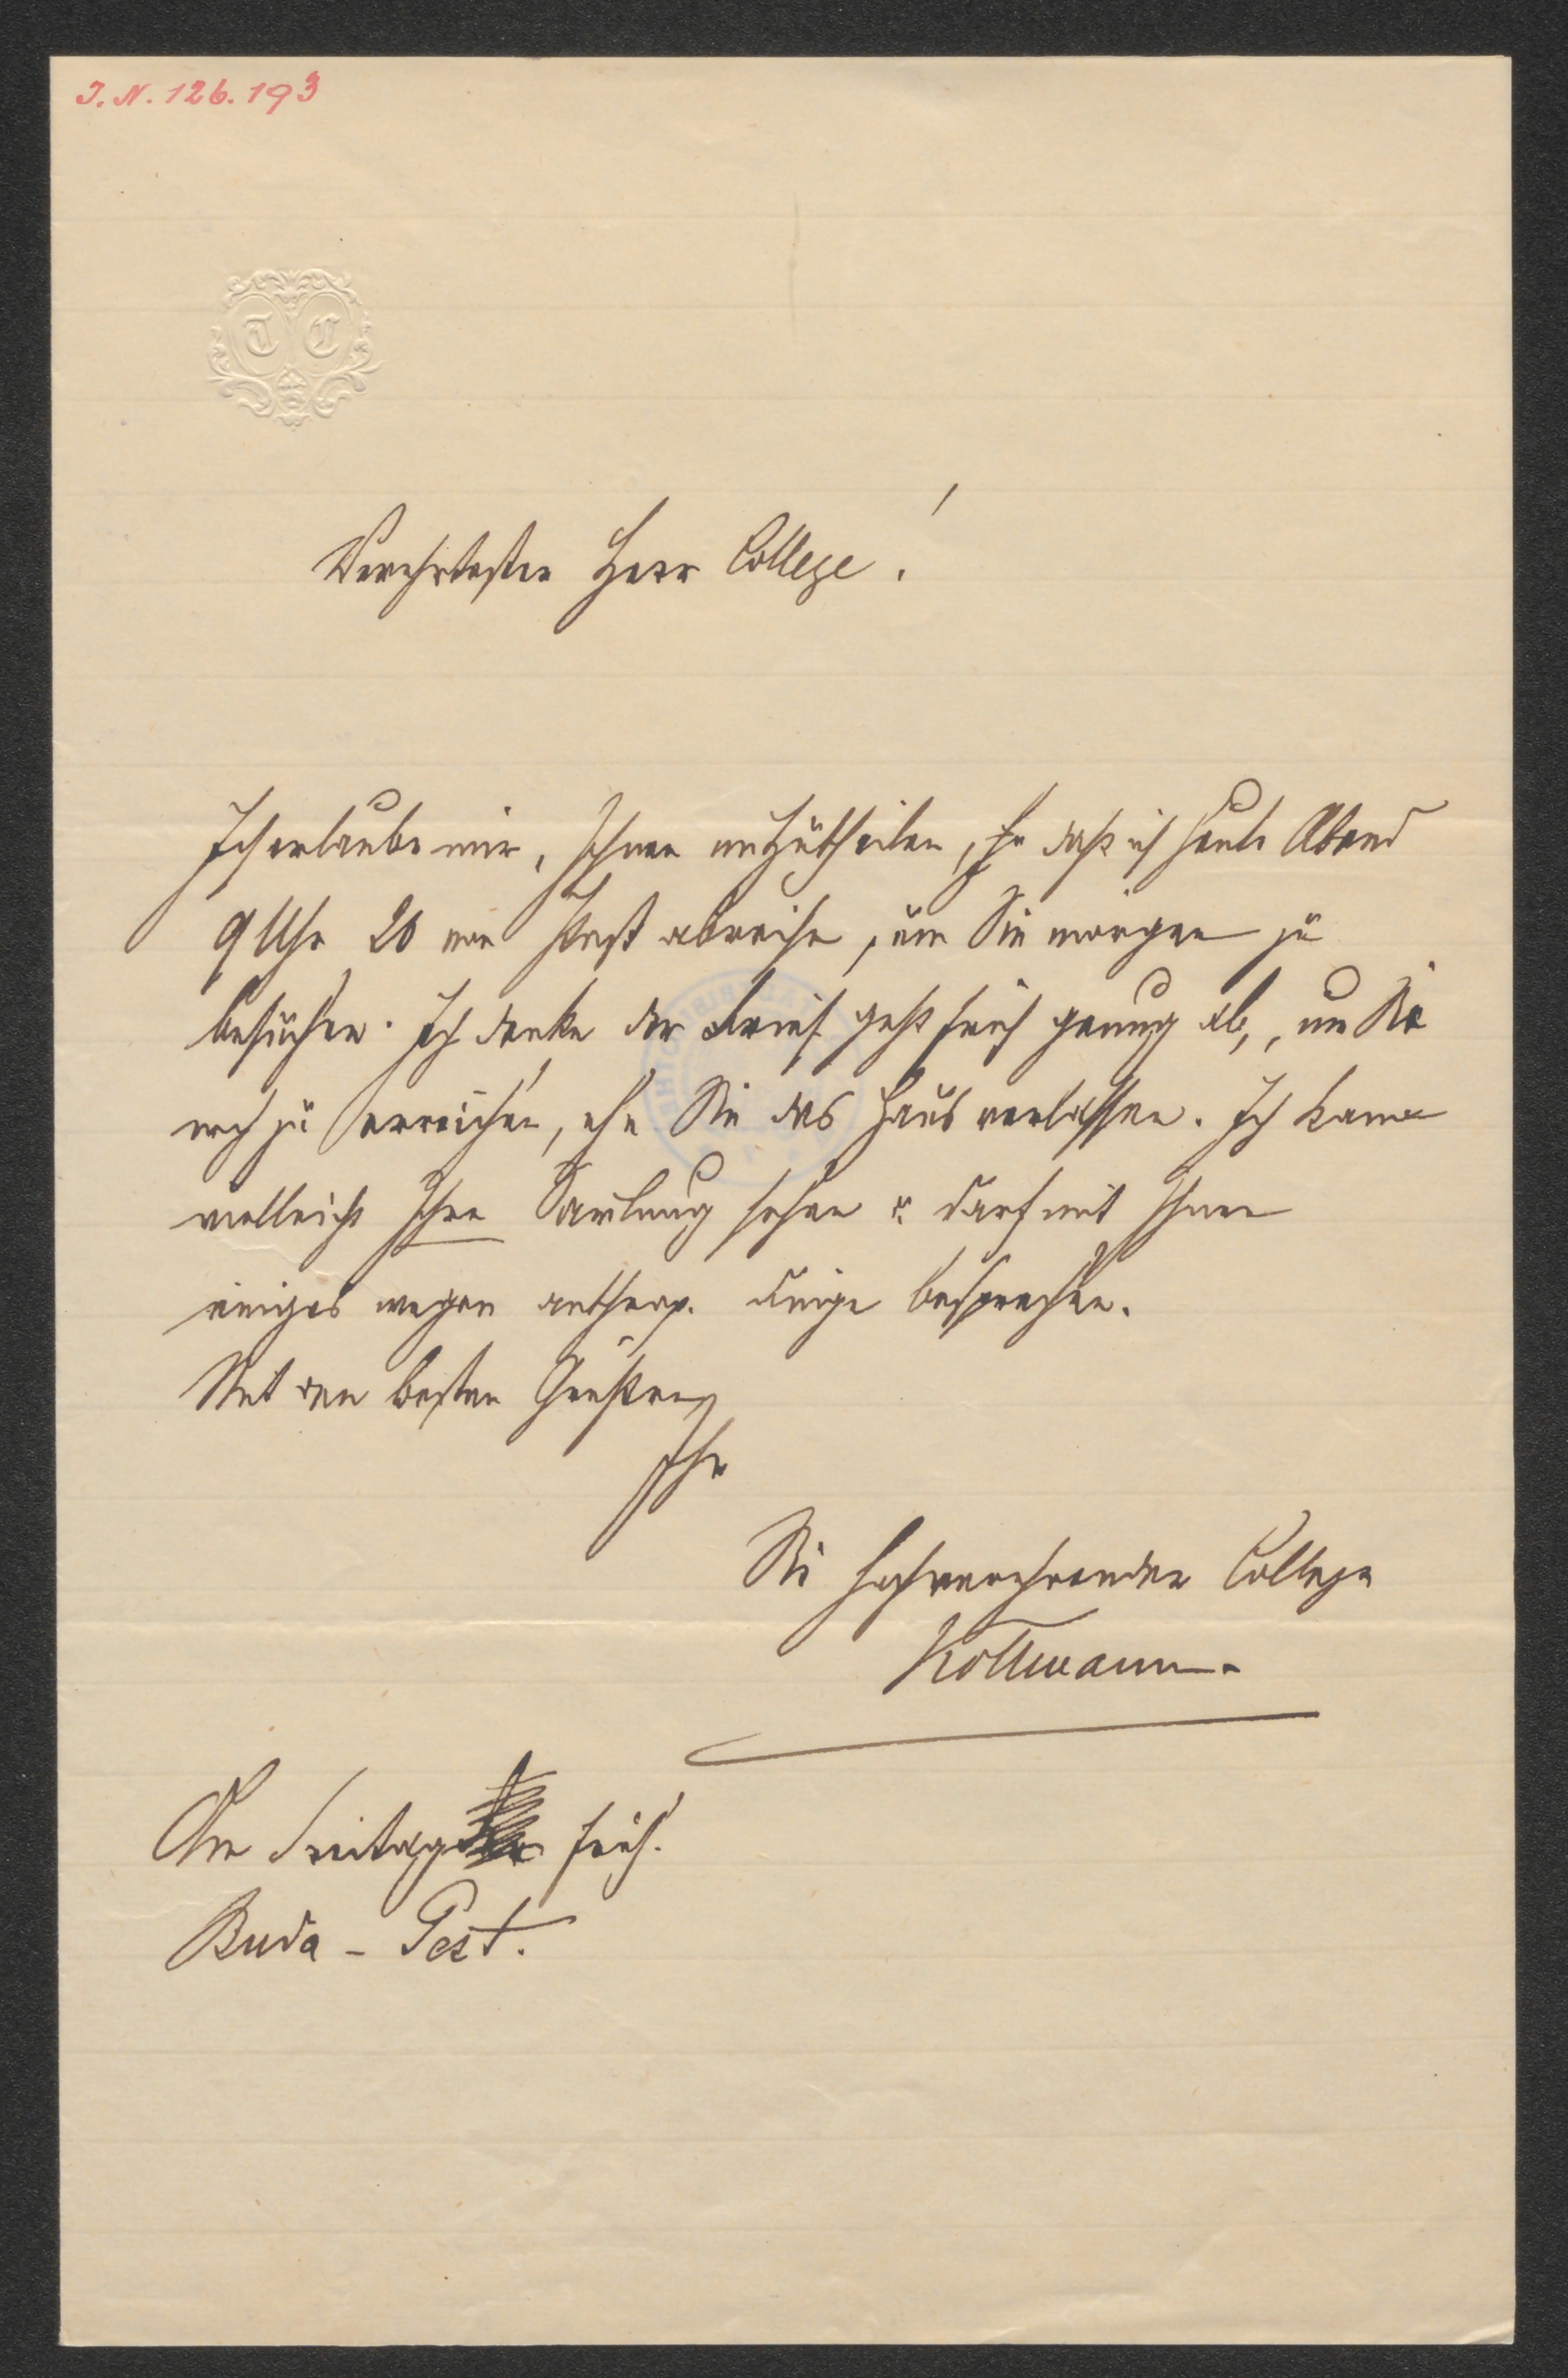 I. N. 126.193
T C
Verehrtester Herr College!
Ich erlaube mir, Ihnen mitzutheilen, daß ich heute Abend
9 Uhr 20 von Pest abreise, um Sie morgen zu
besuchen. Ich denke der Brief geht früh genug ab, um Sie
noch zu erreichen, ehe Sie das Haus verlassen. Ich kann
vielleicht Ihre Samlung sehen u. darf mit Ihnen
einiges wegen anthrop. Dinge besprechen.
Mit den besten Grüßen
Ihr
Sie hochverehrender College
Kollmann.
Am Freitag früh.
Buda - Pest.